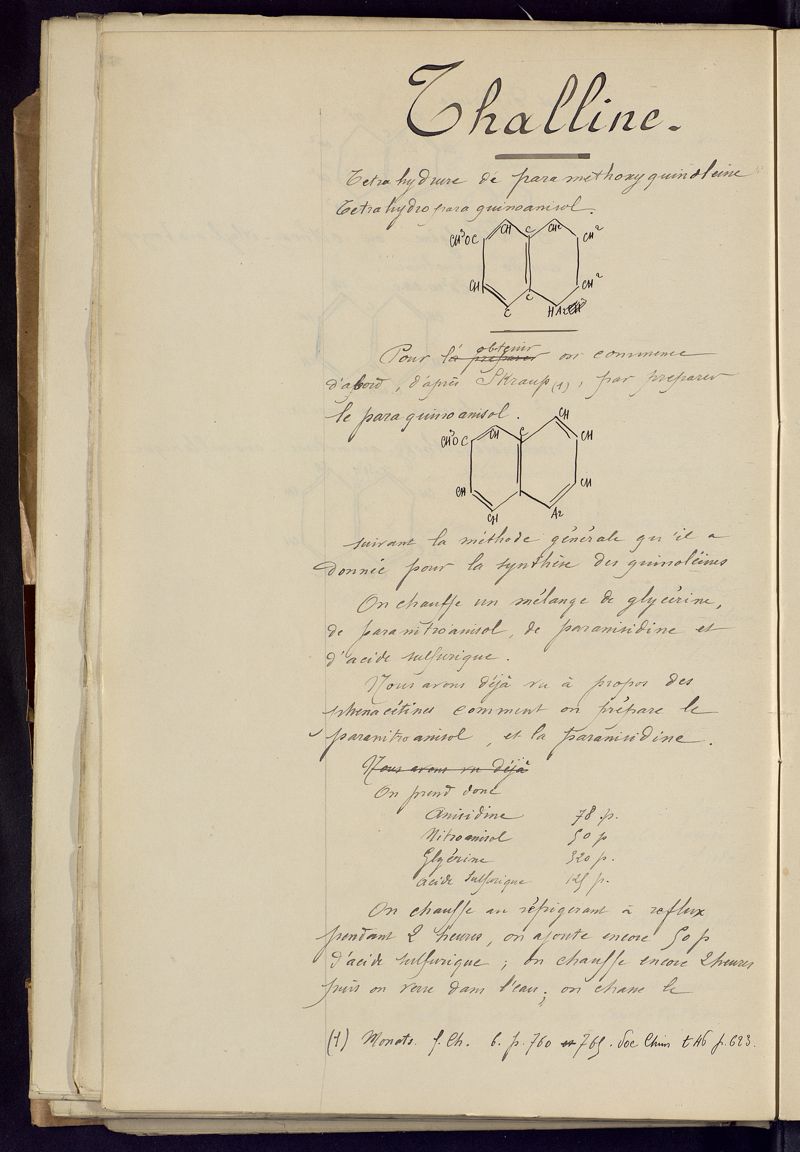 Thalline.
Tetrahydrure de paramethoxyquinoleine
Tetrahydroparaquinoanisol.
CH³OC CH C CH² CH²
CH C C HAz CH²
Pour l'obtenir on commence
d'abord, d'après Skraup (1), par preparer
le paraquinoanisol.
CH³OC CH C CH CH
CH CH Az CH
suivant la méthode générale qu'il a
donnée pour la synthèse des quinoléines
On chauffe un mélange de glycérine,
de paranitroanisol, de paranisidine et
d'acide sulfurique.
Nous avons déjà vu à propos des
phenacétines comment on prépare le
paranitroanisol, et la paranisidine.
Nous avons vu déjà
On prend donc
Anisidine 78 p.
Nitroanisol 50 p
Glycérine 320 p.
acide sulfurique 125 p.
On chauffe au réfrigerant à reflux
pendant 2 heures, on ajoute encore 50 p
d'acide sulfurique ; on chauffe encore 2 heures
puis on verse dans l'eau ; on chasse le
(1) Monats. f. Ch. 6. p. 760 et 765. Soc Chim t 46 p. 623.